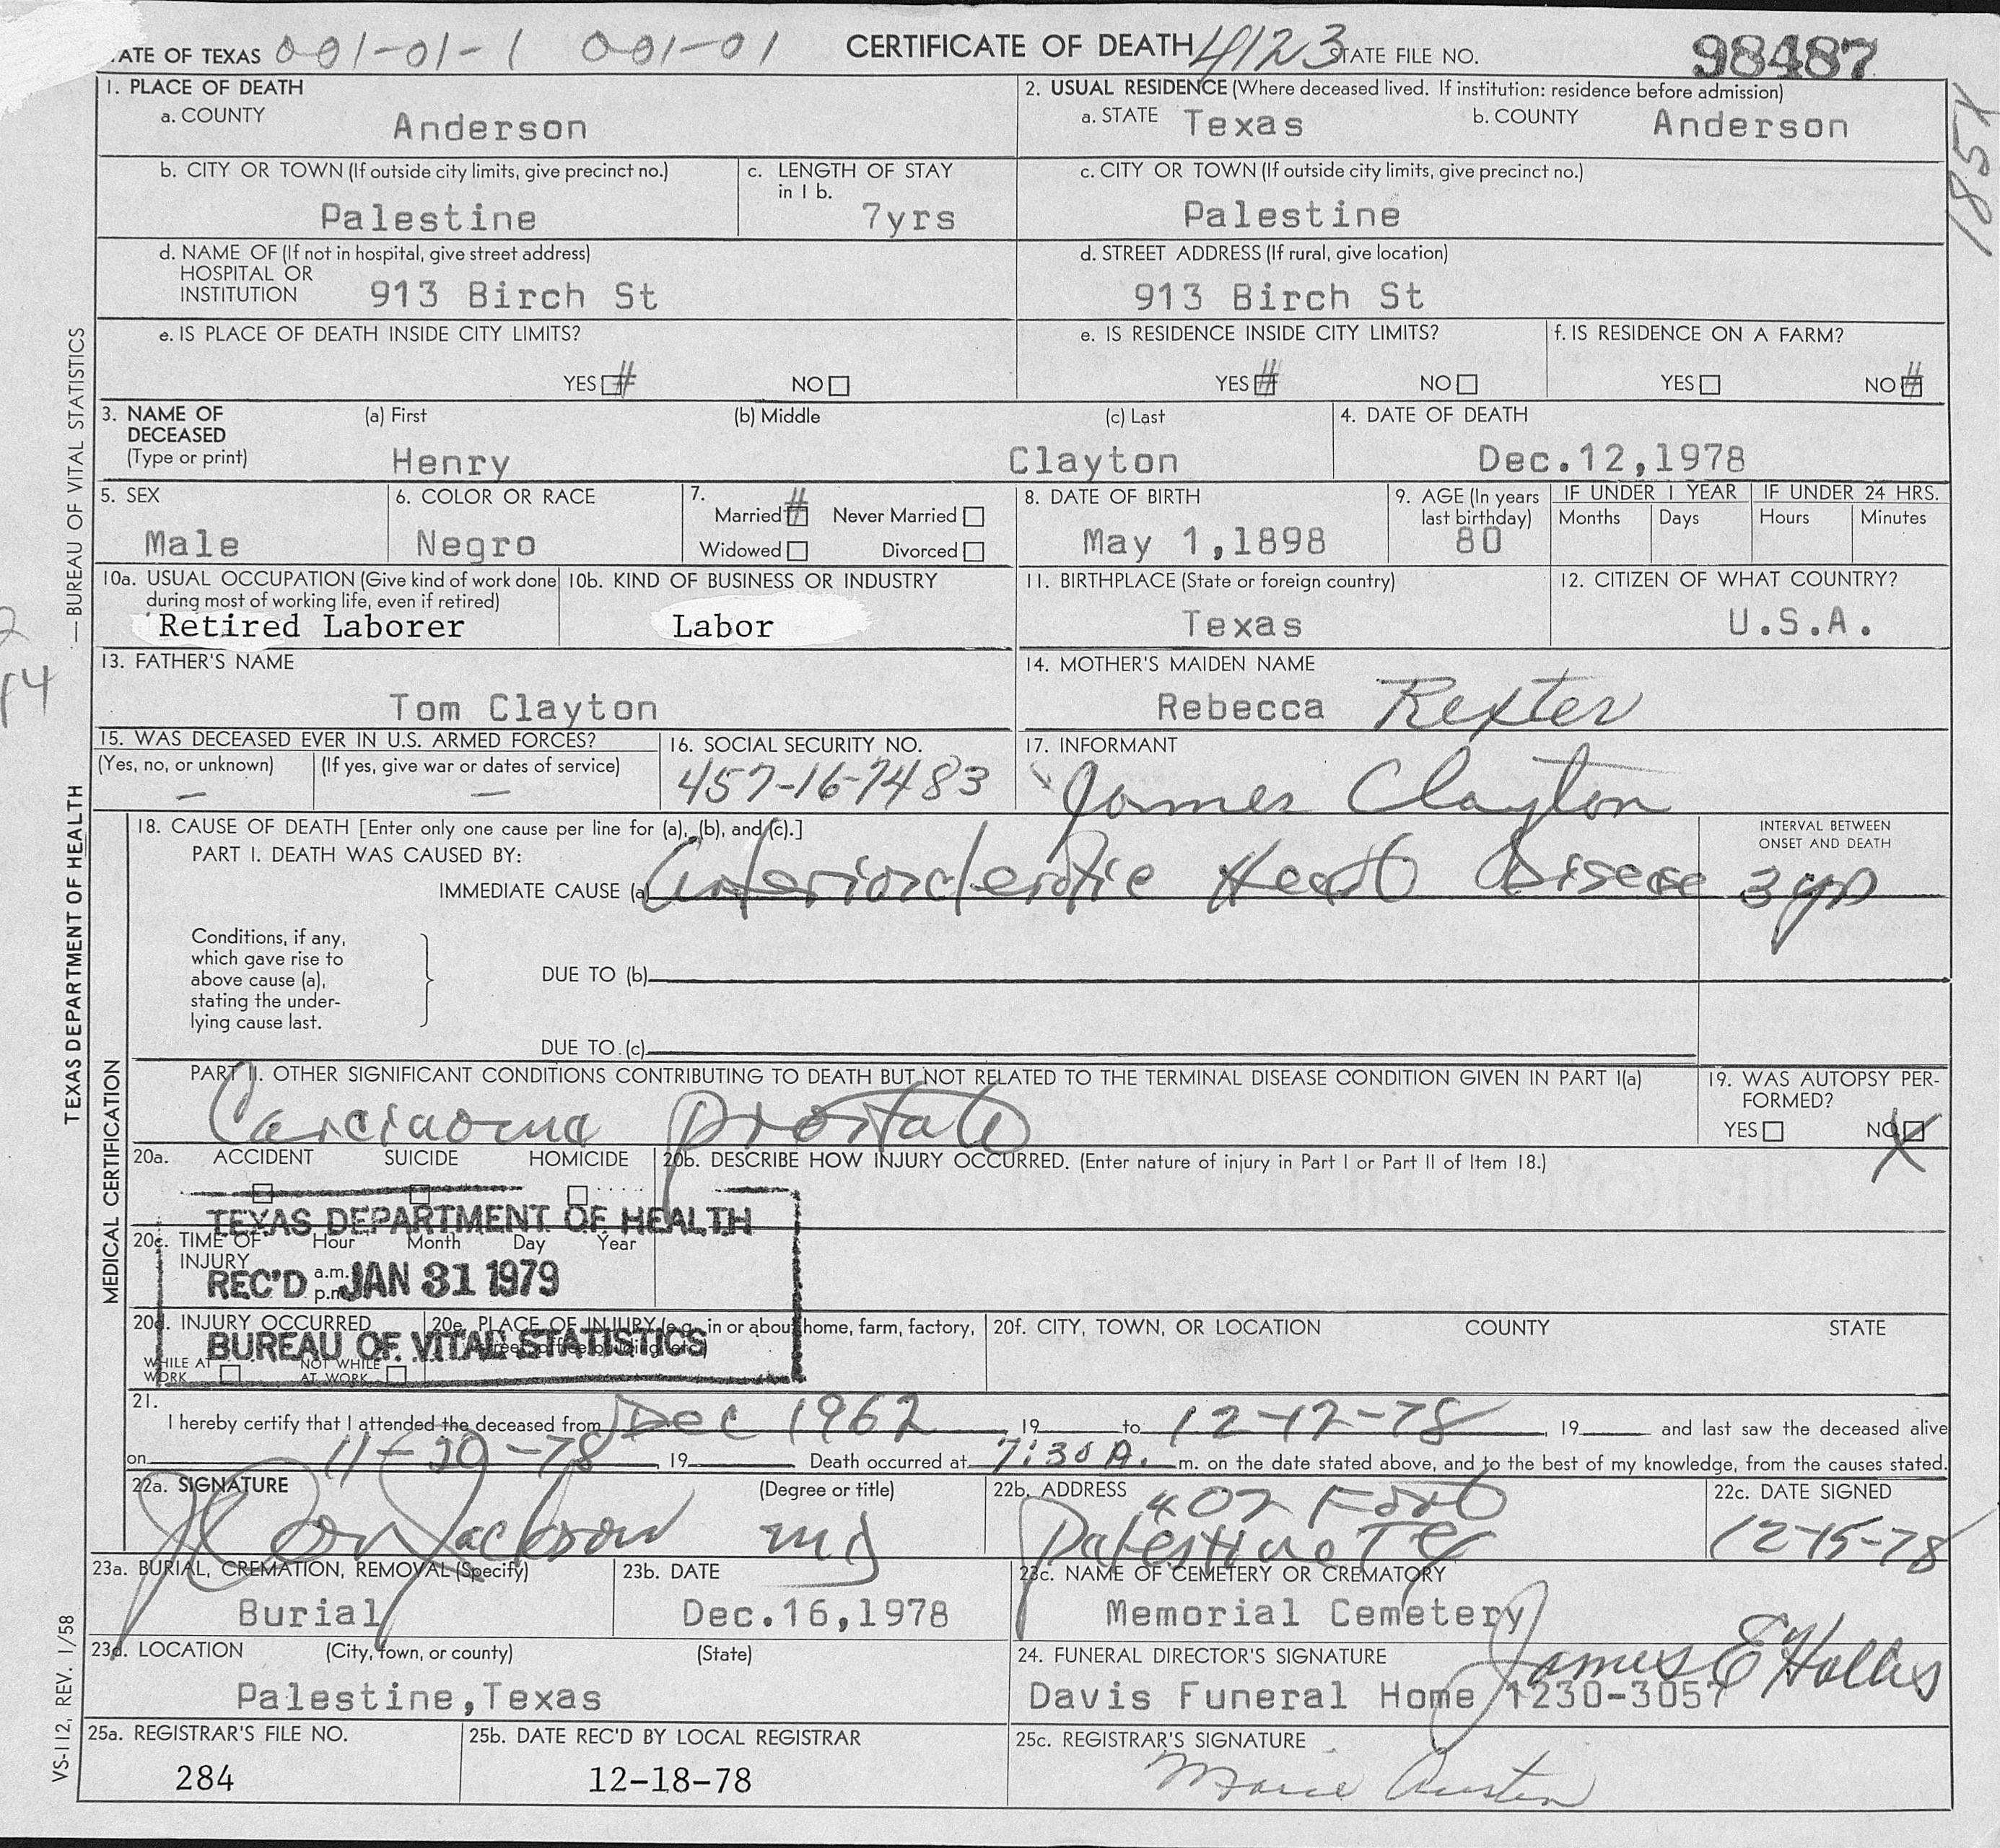 ATE OF TEXAS 001-01-1 001-01 CERTIFICATE OF DEATH 4123 STATE FILE NO. 98487
1854
1. PLACE OF DEATH
a. COUNTY Anderson
2. USUAL RESIDENCE (Where deceased lived. If institution: residence before admission)
a. STATE Texas b. COUNTY Anderson
b. CITY OR TOWN (If outside city limits, give precinct no.) Palestine
c. LENGTH OF STAY in 1 b. 7yrs
c. CITY OR TOWN (If outside city limits, give precinct no.) Palestine
d. NAME OF (If not in hospital, give street address)
HOSPITAL OR
INSTITUTION 913 Birch St
d. STREET ADDRESS (If rural, give location)
913 Birch St
e. IS PLACE OF DEATH INSIDE CITY LIMITS?
YES # NO
e. IS RESIDENCE INSIDE CITY LIMITS?
YES # NO
f. IS RESIDENCE ON A FARM?
YES NO #
3. NAME OF DECEASED (Type or print)
(a) First (b) Middle (c) Last
Henry Clayton
4. DATE OF DEATH
Dec.12,1978
5. SEX
Male
6. COLOR OR RACE
Negro
7.
Married # Never Married
Widowed Divorced
8. DATE OF BIRTH
May 1,1898
9. AGE (In years last birthday)
80
IF UNDER 1 YEAR
Months Days
IF UNDER 24 HRS.
Hours Minutes
10a. USUAL OCCUPATION (Give kind of work done
during most of working life, even if retired)
Retired Laborer
10b. KIND OF BUSINESS OR INDUSTRY
Labor
11. BIRTHPLACE (State or foreign country)
Texas
12. CITIZEN OF WHAT COUNTRY?
U.S.A.
13. FATHER'S NAME
Tom Clayton
14. MOTHER'S MAIDEN NAME
Rebecca Rexter
15. WAS DECEASED EVER IN U.S. ARMED FORCES?
(Yes, no, or unknown) (If yes, give war or dates of service)
— —
16. SOCIAL SECURITY NO.
457-16-7483
17. INFORMANT
James Clayton
18. CAUSE OF DEATH [Enter only one cause per line for (a), (b), and (c).]
PART I. DEATH WAS CAUSED BY:
IMMEDIATE CAUSE (a) Arteriosclerotic Heart Disease
INTERVAL BETWEEN
ONSET AND DEATH
3 yrs
Conditions, if any,
which gave rise to
above cause (a),
stating the under-
lying cause last.
DUE TO (b)
DUE TO (c)
PART II. OTHER SIGNIFICANT CONDITIONS CONTRIBUTING TO DEATH BUT NOT RELATED TO THE TERMINAL DISEASE CONDITION GIVEN IN PART I(a)
Carcinoma prostate
19. WAS AUTOPSY PER-
FORMED?
YES NO X
20a. ACCIDENT SUICIDE HOMICIDE
20b. DESCRIBE HOW INJURY OCCURRED. (Enter nature of injury in Part I or Part II of Item 18.)
TEXAS DEPARTMENT OF HEALTH
20c. TIME OF INJURY Hour Month Day Year
a.m.
p.m.
REC'D JAN 31 1979
20d. INJURY OCCURRED
WHILE AT WORK NOT WHILE AT WORK
20e. PLACE OF INJURY (e.g., in or about home, farm, factory,
BUREAU OF VITAL STATISTICS
20f. CITY, TOWN, OR LOCATION COUNTY STATE
21.
I hereby certify that I attended the deceased from Dec 1962, 19 to 12-12-78, 19 and last saw the deceased alive
on 11-20-78, 19 Death occurred at 7:30 A. m. on the date stated above, and to the best of my knowledge, from the causes stated.
22a. SIGNATURE (Degree or title)
Jackson MD
22b. ADDRESS
407 Fort
Palestine Tex
22c. DATE SIGNED
12-15-78
23a. BURIAL, CREMATION, REMOVAL (Specify)
Burial
23b. DATE
Dec.16,1978
23c. NAME OF CEMETERY OR CREMATORY
Memorial Cemetery
23d. LOCATION (City, town, or county) (State)
Palestine,Texas
24. FUNERAL DIRECTOR'S SIGNATURE
James E Hollis
Davis Funeral Home 1230-3057
25a. REGISTRAR'S FILE NO.
284
25b. DATE REC'D BY LOCAL REGISTRAR
12-18-78
25c. REGISTRAR'S SIGNATURE
Marie Austin
TEXAS DEPARTMENT OF HEALTH — BUREAU OF VITAL STATISTICS
MEDICAL CERTIFICATION
VS-112, REV. 1/58